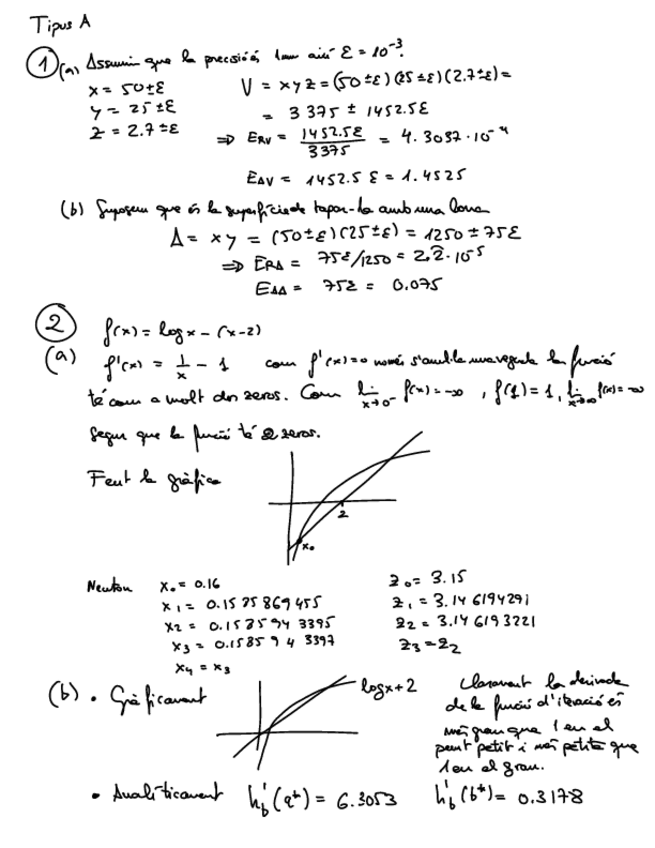 Tipus A
1 (a) Assumim que la precisió és 1mm així ε = 10⁻³.
x = 50 ± ε
y = 25 ± ε
z = 2.7 ± ε
V = xyz = (50 ± ε)(25 ± ε)(2.7 ± ε) =
= 3375 ± 1452.5ε
⇒ E_RV = 1452.5ε / 3375 = 4.3037·10⁻⁴
E_ΔV = 1452.5 ε = 1.4525
(b) Suposem que és la superfície de tapar-la amb una lona
A = xy = (50 ± ε)(25 ± ε) = 1250 ± 75ε
⇒ E_RA = 75ε/1250 = 2.2·10⁻⁵
E_ΔA = 75ε = 0.075
2 f(x) = log x - (x-2)
(a) f'(x) = 1/x - 1 com f'(x)=0 només s'anul·la una vegada la funció
té com a molt dos zeros. Com lim x→0⁻ f(x) = -∞, f(1)=1, lim x→∞ f(x) = -∞
segur que la funció té 2 zeros.
Fent la gràfica
2
x₀
Newton x₀ = 0.16 z₀ = 3.15
x₁ = 0.1585869455 z₁ = 3.146194291
x₂ = 0.1585943395 z₂ = 3.146193221
x₃ = 0.1585943397 z₃ = z₂
x₄ = x₃
(b) • Gràficament
log x + 2
Clarament la derivada
de la funció d'iteració és
més gran que 1 en el
punt petit i més petita que
1 en el gran.
• Analíticament h'_b(a*) = 6.3053 h'_b(b*) = 0.3178